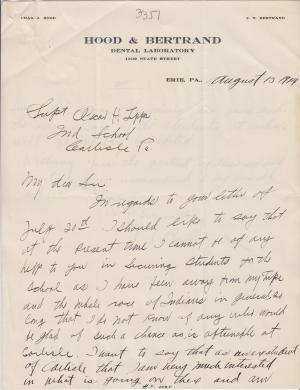 3351
CHAS. J. HOOD
J. N. BERTRAND
HOOD & BERTRAND
DENTAL LABORATORY
1209 STATE STREET
ERIE, PA., August 13 1909
Supt Oscar H. Lipps
Ind. School
Carlisle Pa.
My dear Sir,
In regards to your letter of
July 21st I should like to say that
at the present time I cannot be of any
help to you in securing students for the
School as I have been away from my tribe
and the whole race of Indians in general so
long that I do not know of any who would
be glad of such a chance as is offered at
Carlisle. I want to say that as an
of Carlisle that I am very much interested
in what is going on there and am